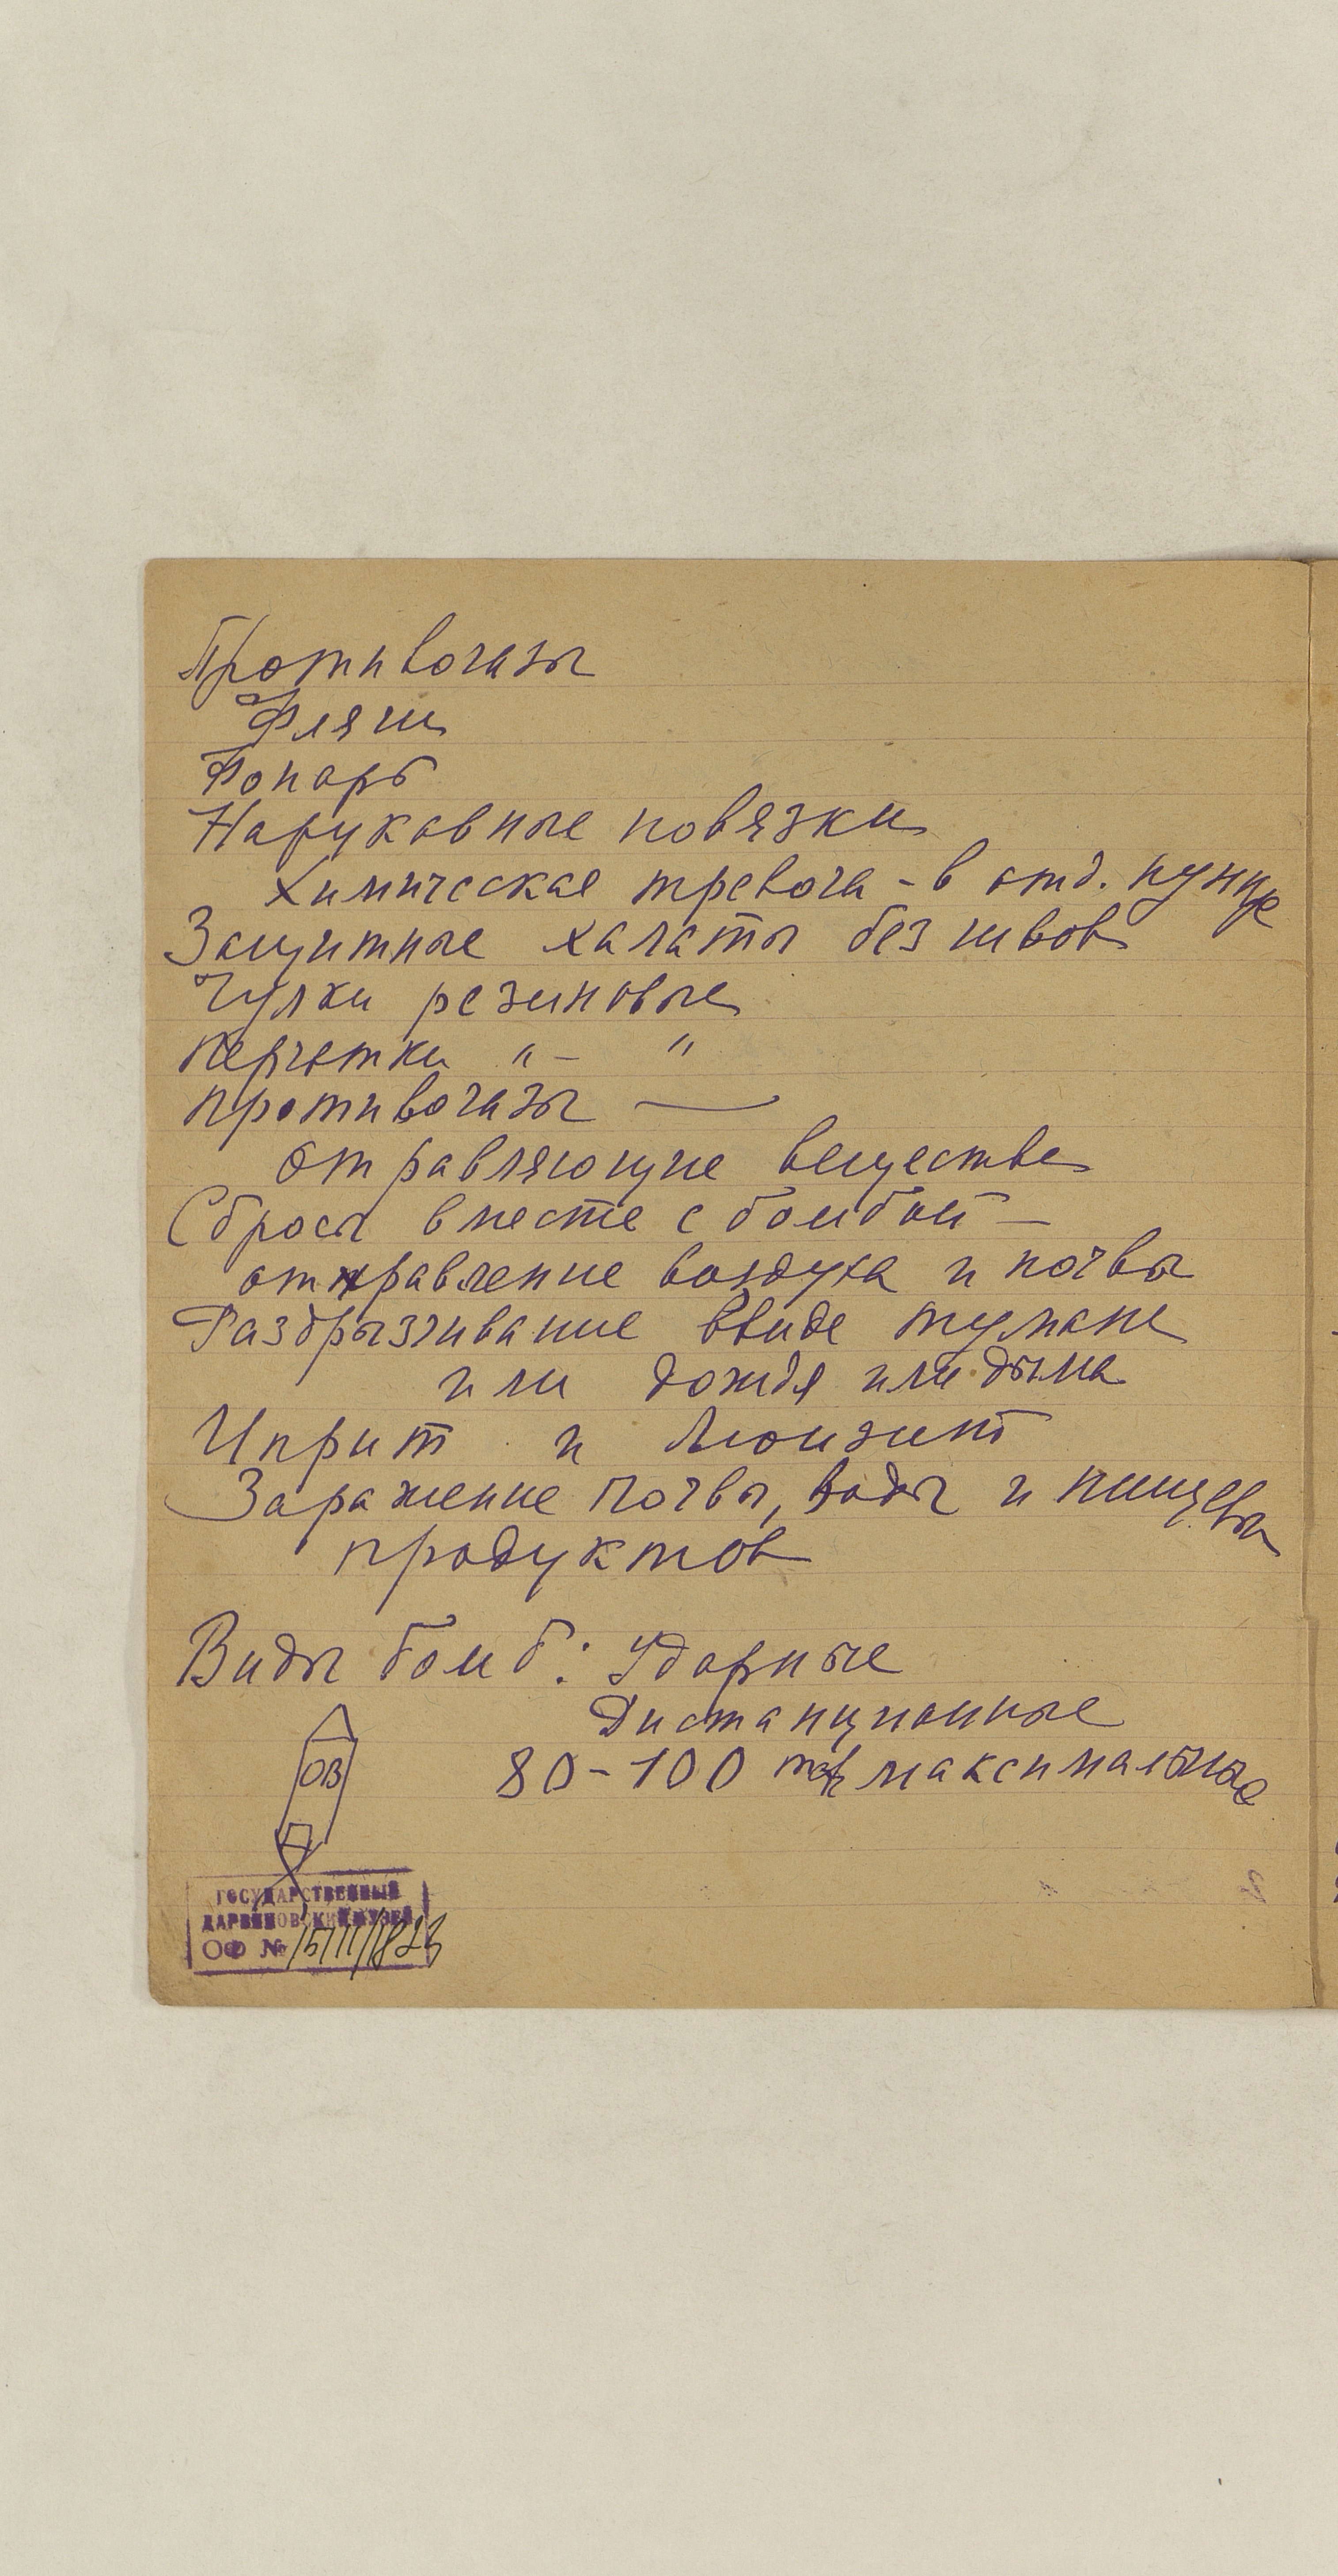 Противогазы
Фляги
Фонарь
Нарукавные повязки
Химическая тревога - в отд. пункте
Защитные халаты без швов
Чулки резиновые
Перчатки " - "
Противогазы —
Отравляющие вещества
Сбросы вместе с бомбой —
отправление воздуха и почвы
Разбрызгивание ввиде тумана
или дождя или дыма
Иприт и Люизит
Заражение почвы, воды и пищевы
продуктов
Виды бомб: Ударные
Дистанционные
ОВ
80-100 максимальные
ГОСУДАРСТВЕННЫЙ
ДАРВИНОВСКИЙ МУЗЕЙ
ОФ №